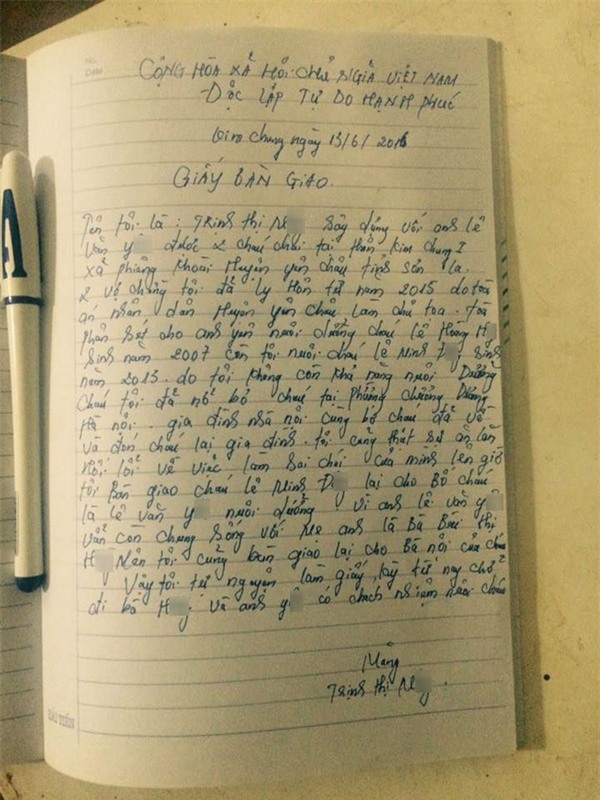 No.
Date
CỘNG HÒA XÃ HỘI CHỦ NGHĨA VIỆT NAM
ĐỘC LẬP TỰ DO HẠNH PHÚC
Kim chung ngày 13/6/2016
GIẤY BÀN GIAO.
Tên tôi là: Trịnh thị N Sây dựng với anh lê
văn y được 2 cháu cháu tại thôn kim chung I
xã phiêng khoài Huyện yên châu tỉnh sơn la.
2 vợ chồng tôi đã ly Hôn từ năm 2015 do tòa
án nhân dân Huyện yên châu làm chủ tọa. tòa
phán sét cho anh yên nuôi dưỡng cháu lê Hoàng H
Sinh năm 2007 còn tôi nuôi cháu lê Minh Sinh
năm 2013. do tôi không còn khả năng nuôi Dưỡng
cháu tôi đã bỏ cháu tại phường
Hà nội. gia đình nhà nội cùng bố cháu đã về
và đón cháu lại gia đình. tôi cũng thật sự ăn năn
lỗi về việc làm sai của mình lên giờ
tôi bàn giao cháu lê Minh Đ lại cho Bố cháu
là lê văn y nuôi dưỡng. vì anh lê văn y
vẫn còn chung sống với Mẹ anh là Bà Bùi thị
H Nên tôi cũng bàn giao lại cho Bà nội của cháu
Vậy tôi tự nguyện làm giấy, kỳ từ nay chở
đi bà H và anh y có chách nhiệm nuôi cháu
Trịnh thị N
HẢI TIẾN
A